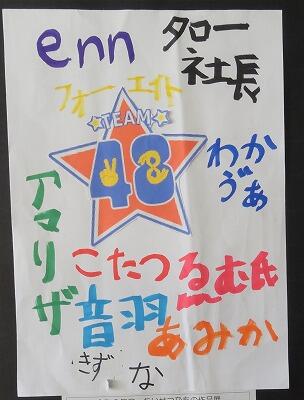 enn
タロー
社長
フォーエイト
TEAM
48
わか
ゔぁ
アマリザ
こたつ
るぅむ氏
音羽
あみか
きずな